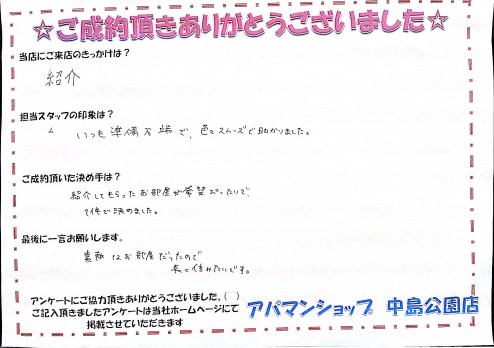 ☆ご成約頂きありがとうございました☆
当店にご来店のきっかけは？
紹介
担当スタッフの印象は？
いつも準備万端で、色々スムーズで助かりました。
ご成約頂いた決め手は？
紹介してもらったお部屋が希望だったので、
1件で決めました。
最後に一言お願いします。
素敵なお部屋だったので
長く住みたいです。
アンケートにご協力頂きありがとうございました。( )
ご記入頂きましたアンケートは当社ホームページにて
掲載させていただきます
アパマンショップ 中島公園店